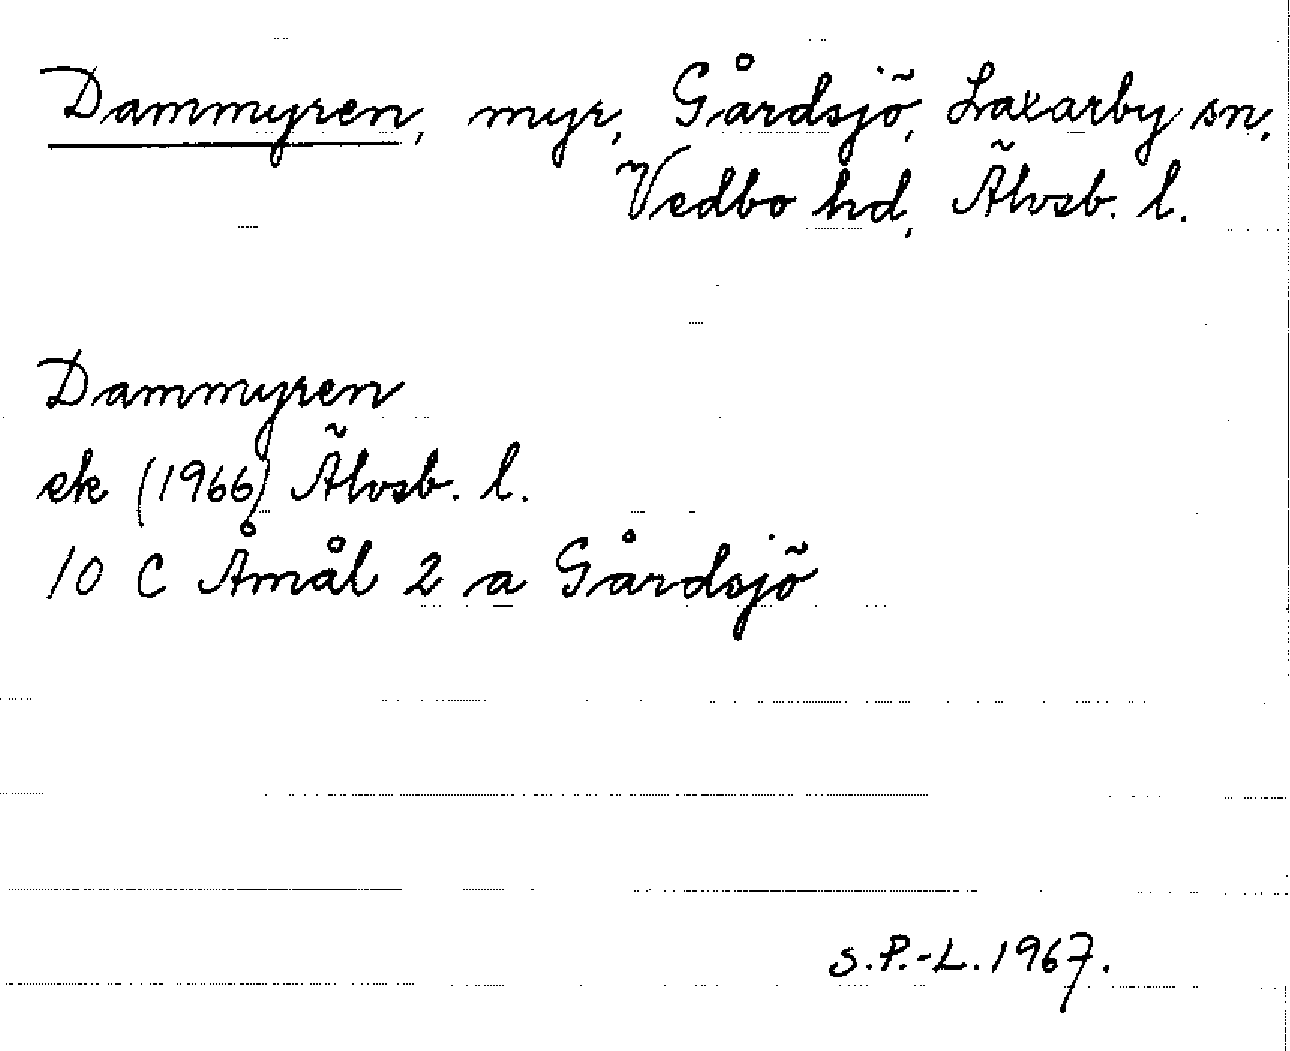 Dammyren, myr, Gårdsjö, Laxarby sn,
Vedbo hd, Älvsb. l.
Dammyren
ek (1966) Älvsb. l.
10 C Åmål 2 a Gårdsjö
S.P.-L. 1967.